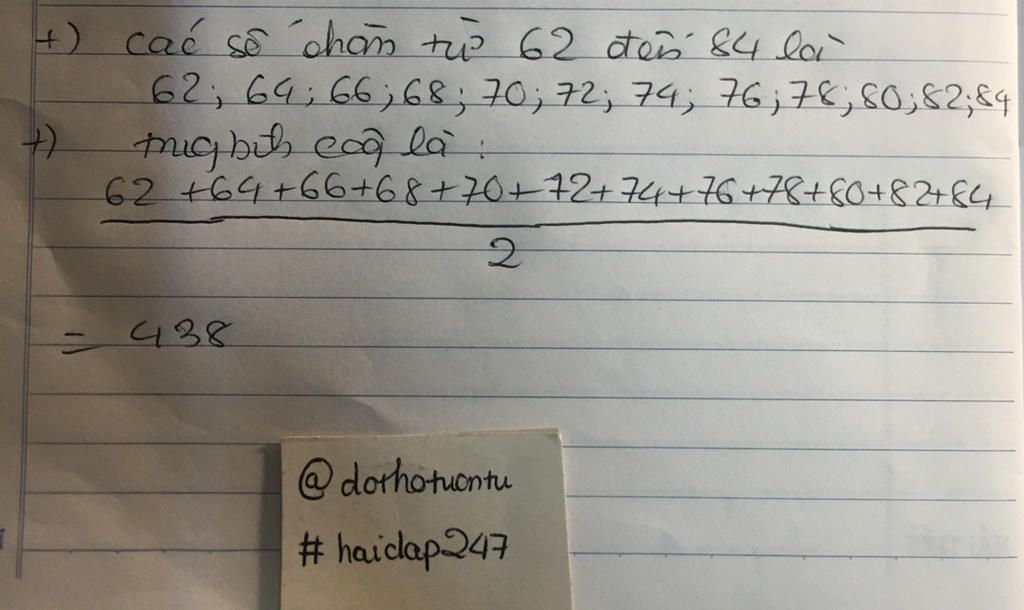 +) các số chẵn từ 62 đến 84 là
62; 64; 66; 68; 70; 72; 74; 76; 78; 80; 82; 84
+) trung bình cộng là :
62 + 64 + 66 + 68 + 70 + 72 + 74 + 76 + 78 + 80 + 82 + 84
2
= 438
@dorhotuontu
# haidap247